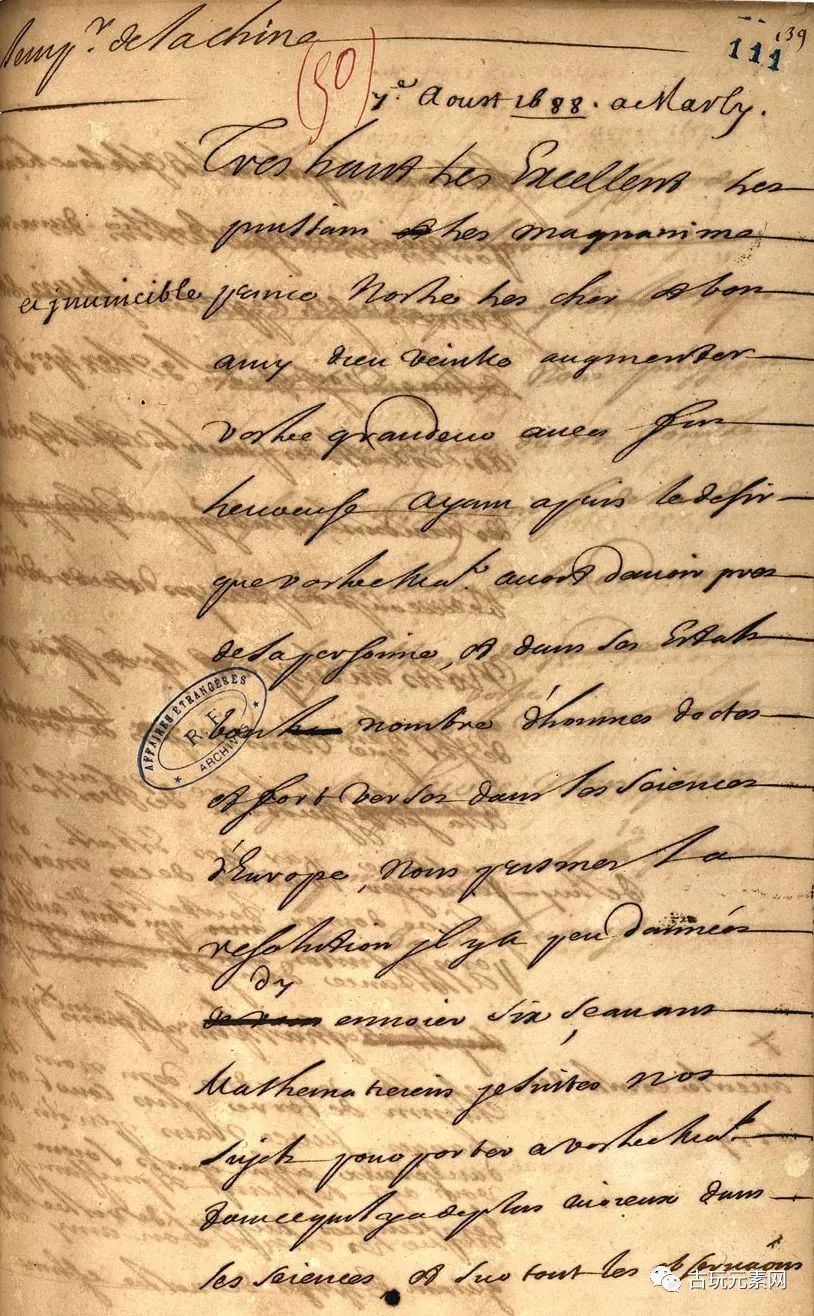 Emp.r de la chine
(50)
139
111
7e Aoust 1688. a Marly.
Tres haut tres Excellent tres
puissant et tres magnanime
et jnuincible prince Nostre tres cher et bon
amy dieu veuille augmenter
vostre grandeur auec fin
heureuse Ayant apris le desir
que vostre Ma.té auoit dauoir pres
de sa personne, et dans ses Estats
bon nombre d'hommes doctes
et fort versez dans les sciences
d'Europe, Nous prismes La
resolution jl y a peu dannées
dy
enuoier six sçauans
Mathematiciens jesuites nos
sujets pour porter a vostre Ma.té
ce quil y a de plus curieux dans
les sciences et sur tout les obseruaõns
AFFAIRES ÉTRANGÈRES
R. F.
ARCHIVES
古玩元素网